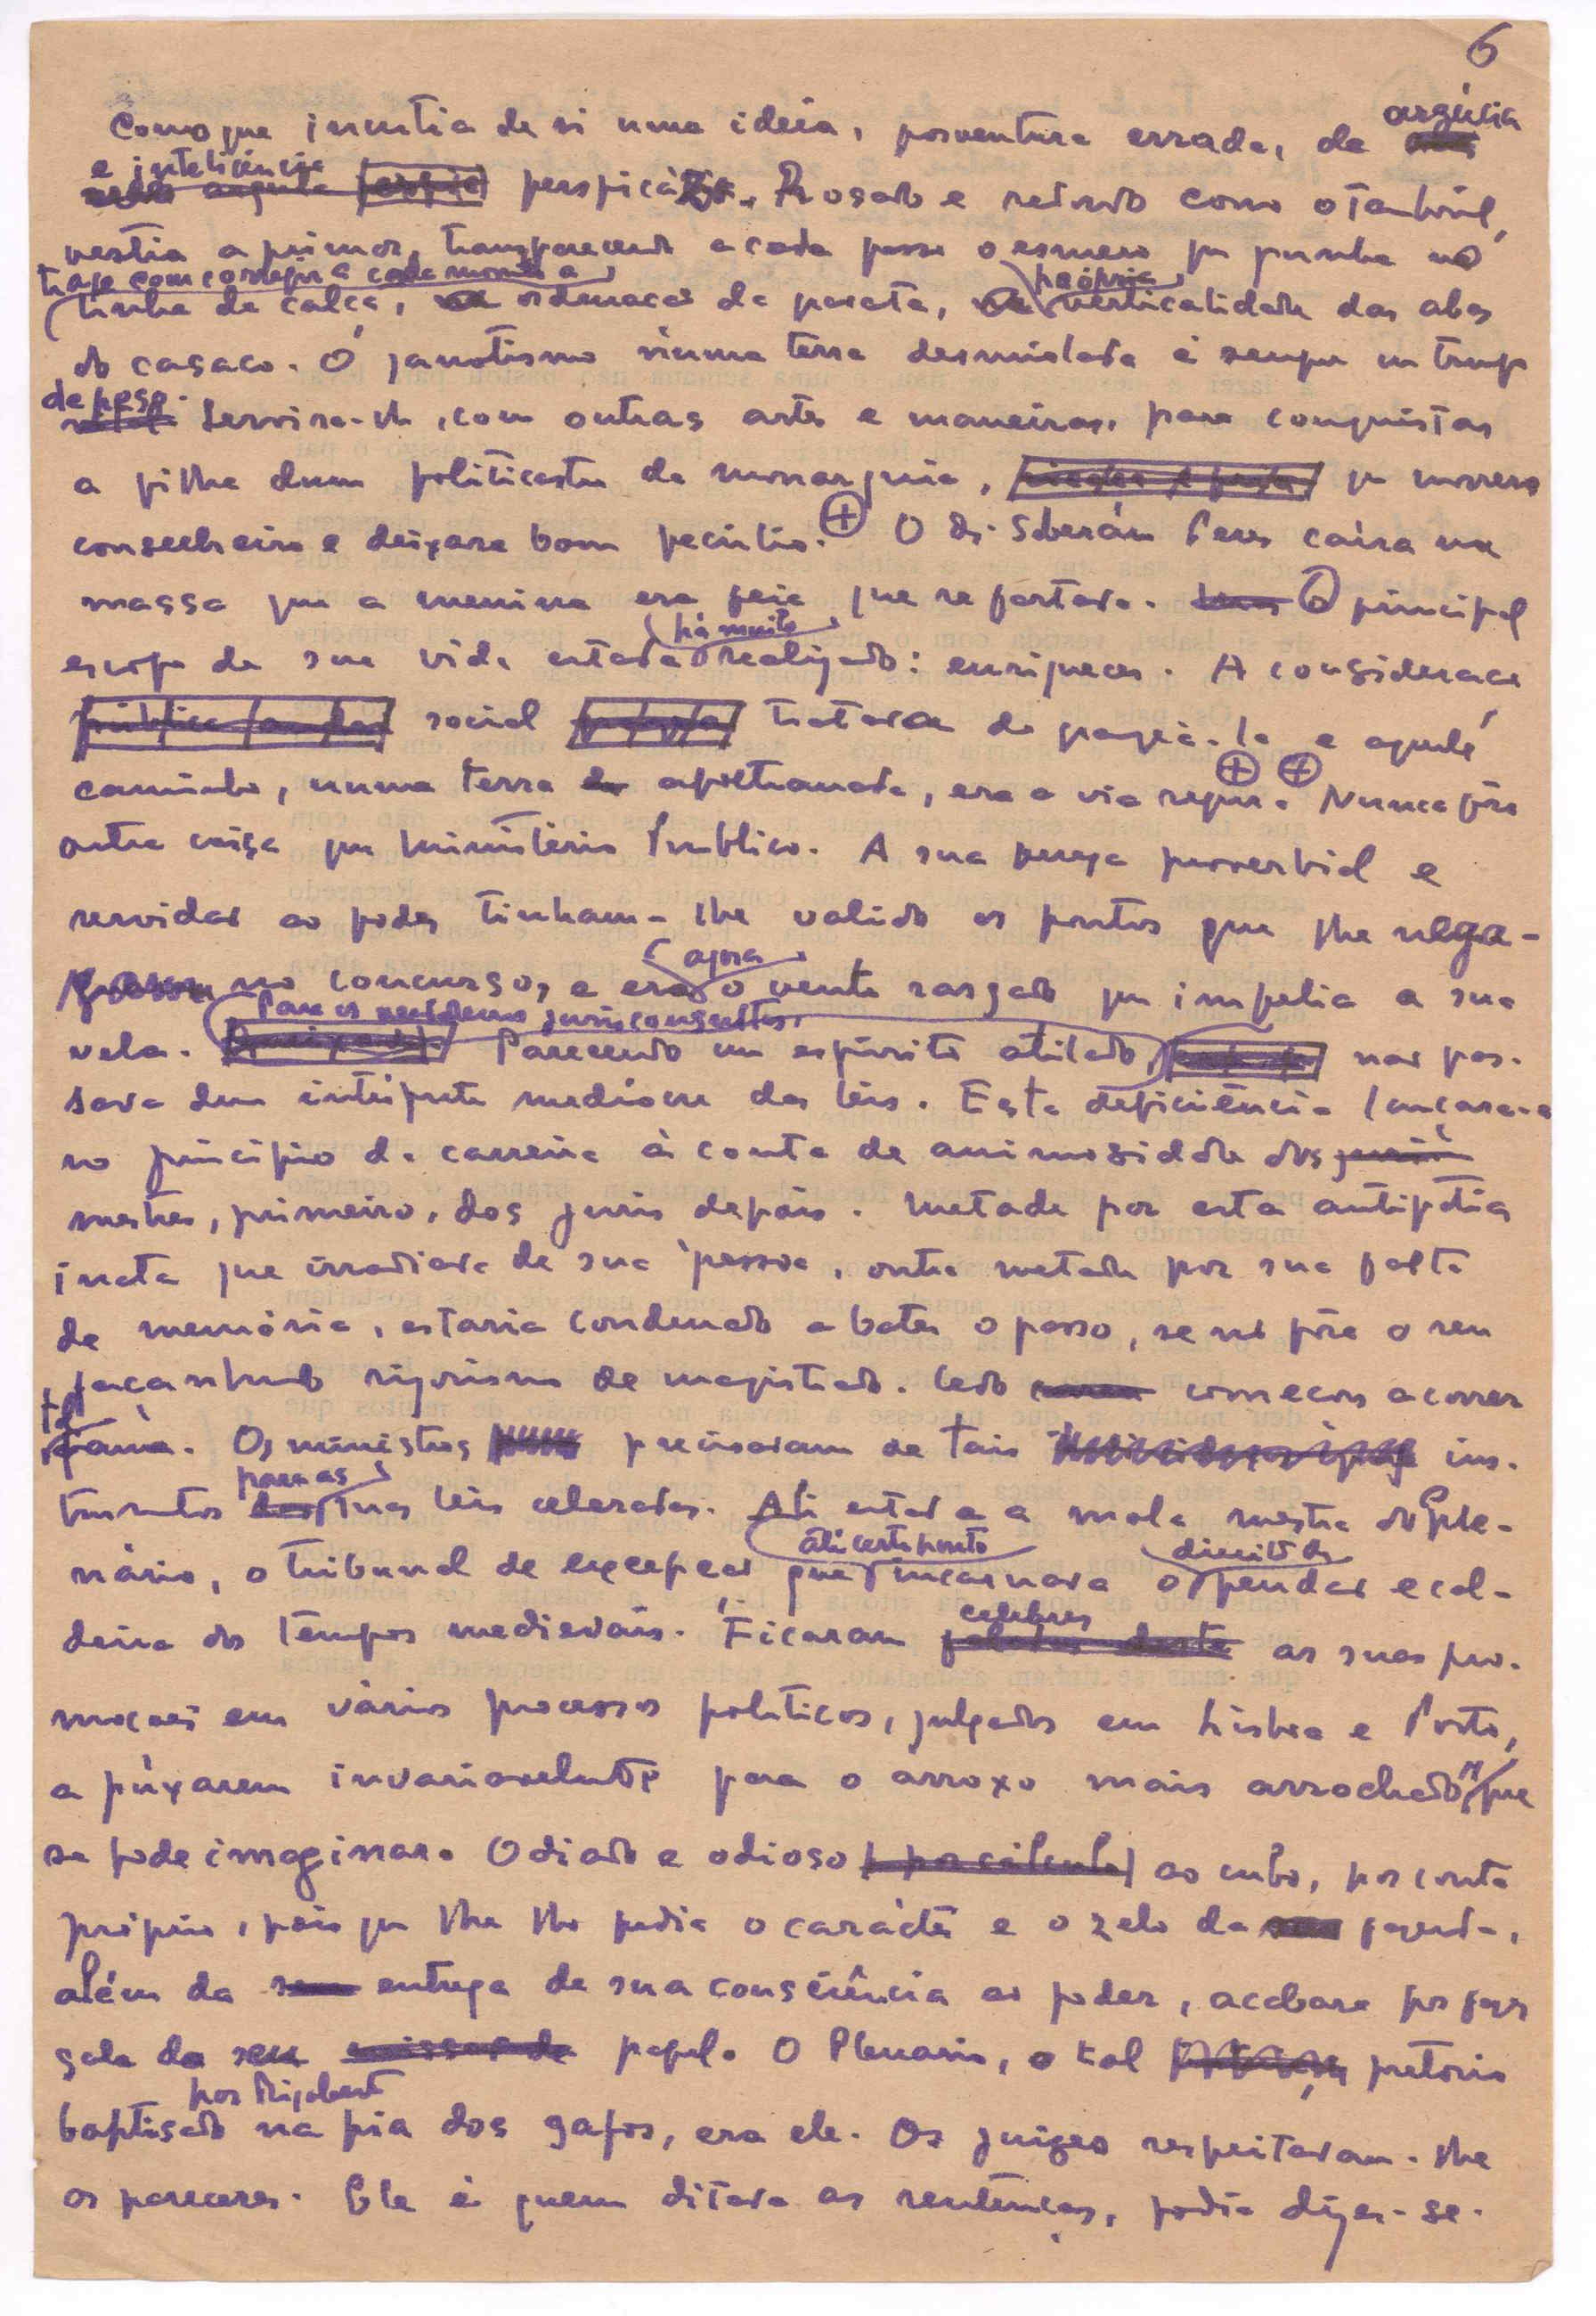 6
Como que incutia de si uma ideia, porventura errada, de argúcia
e inteligência perspicáz. Rosado e redondo como o tamboril,
vestia a primor, transparecendo a cada passo o esmero que punha no
traje com
linha da calça, ordenação da gravata, própria verticalidade das abas
do casaco. O janotismo numa terra desmiolada é sempre um trunfo
de peso. Servira-lh, com outras artes e maneiras, para conquistar
a filha dum politicastro da monarquia, que morrera
conselheiro e deixara bom pecúlio. O dr. Soberán Peres caíra na
massa que a menina era feia que se fartava. O principal
escopo da sua vida estava há muito realizado: enriquecer. A consideração
social tratava de granjeá-la e aquele
caminho, numa terra apoltronada, era a via régia. Nunca fôra
outra coisa que Ministério Publico. A sua proverbial e
servidão ao poder tinham-lhe valido os pontos que lhe nega-
no concurso, e era agora o vento rasgado que impelia a sua
vela. Para os jurisconsultos, Parecendo um espírito atilado, não pas-
sava dum intérprete medíocre das leis. Esta deficiência lançara-a
no princípio da carreira à conta de animosidade dos
mestres, primeiro, dos juris depois. Metade por esta antipatia
inata que irradiava de sua pessoa, outra metade por sua falta
de memória, estaria condenado a bater o passo, se não fôra o seu
façanhudo rigorismo de magistrado. Cedo começou a correr
tal fama. Os ministros precisavam de tais ins-
trumentos para as suas leis celeradas. Ali estava a mola mestra do Ple-
nário, o tribunal de excepção que até certo ponto incarnava o direito de pendão e cal-
deira dos tempos medievais. Ficaram celebres as suas pro-
moções em vários processos políticos, julgados em Lisboa e Porto,
a puxarem invariavelmente para o arroxo mais arrochado que
se pode imaginar. Odiado e odioso ao cubo, por conta
própria, pois que lhe lho pedia o carácter e o zelo da fazenda,
além da entrega de sua consciência ao poder, acabara por fazer
gala do seu papel. O Plenario, o tal pretorio
baptisado por Rigoberto na pia dos gafos, era ele. Os juizes respeitavam-lhe
os pareceres. Ele é quem ditava as sentenças, podia dizer-se.